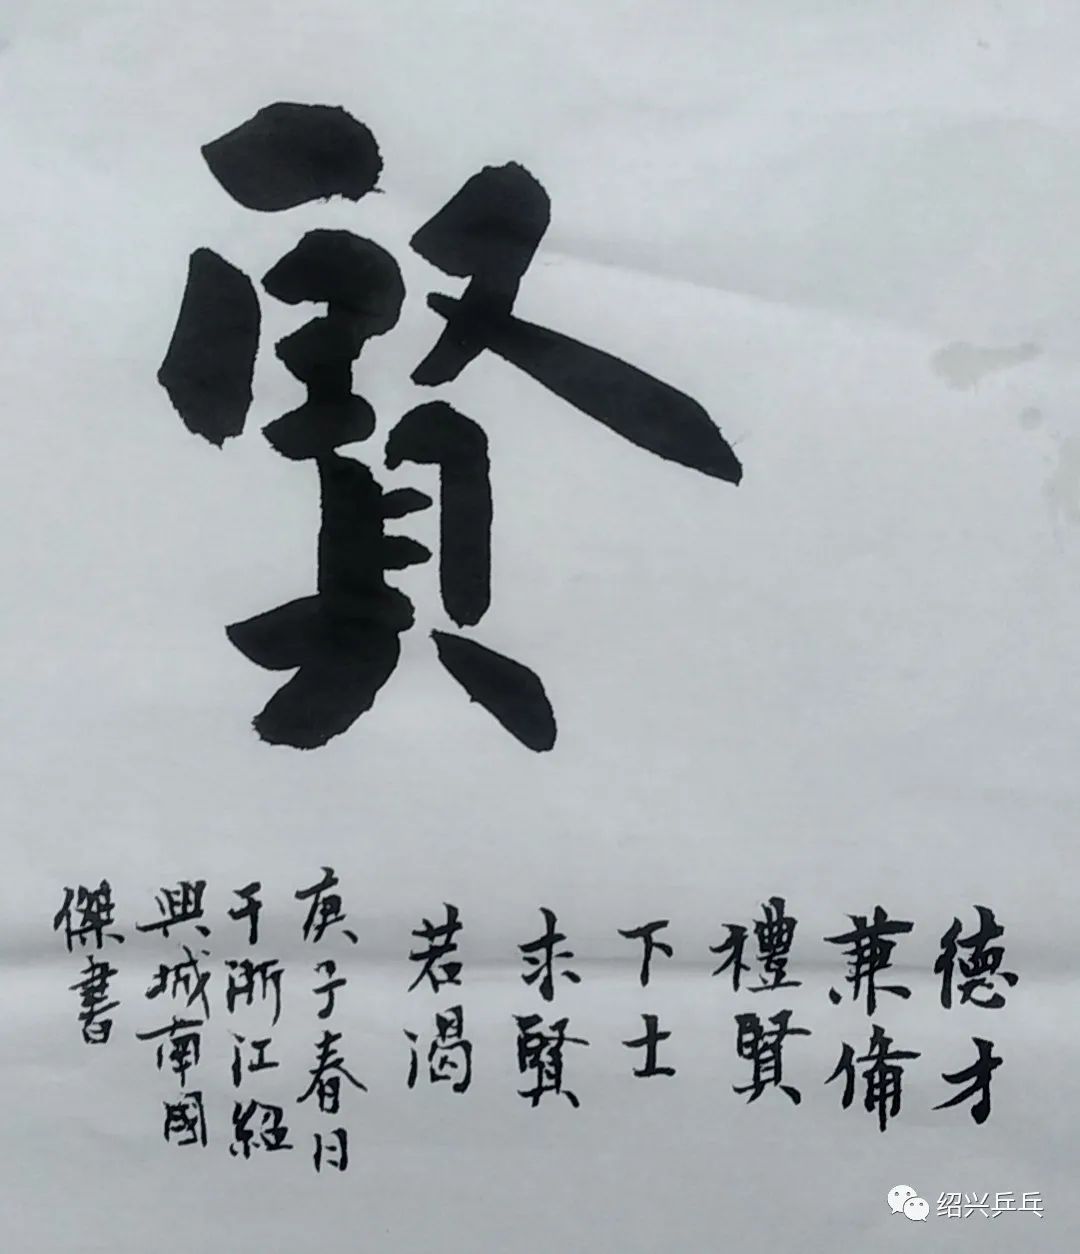 賢
德才
兼備
禮賢
下士
求賢
若渴
庚子春日
于浙江紹
興城南國
傑書
绍兴乒乓